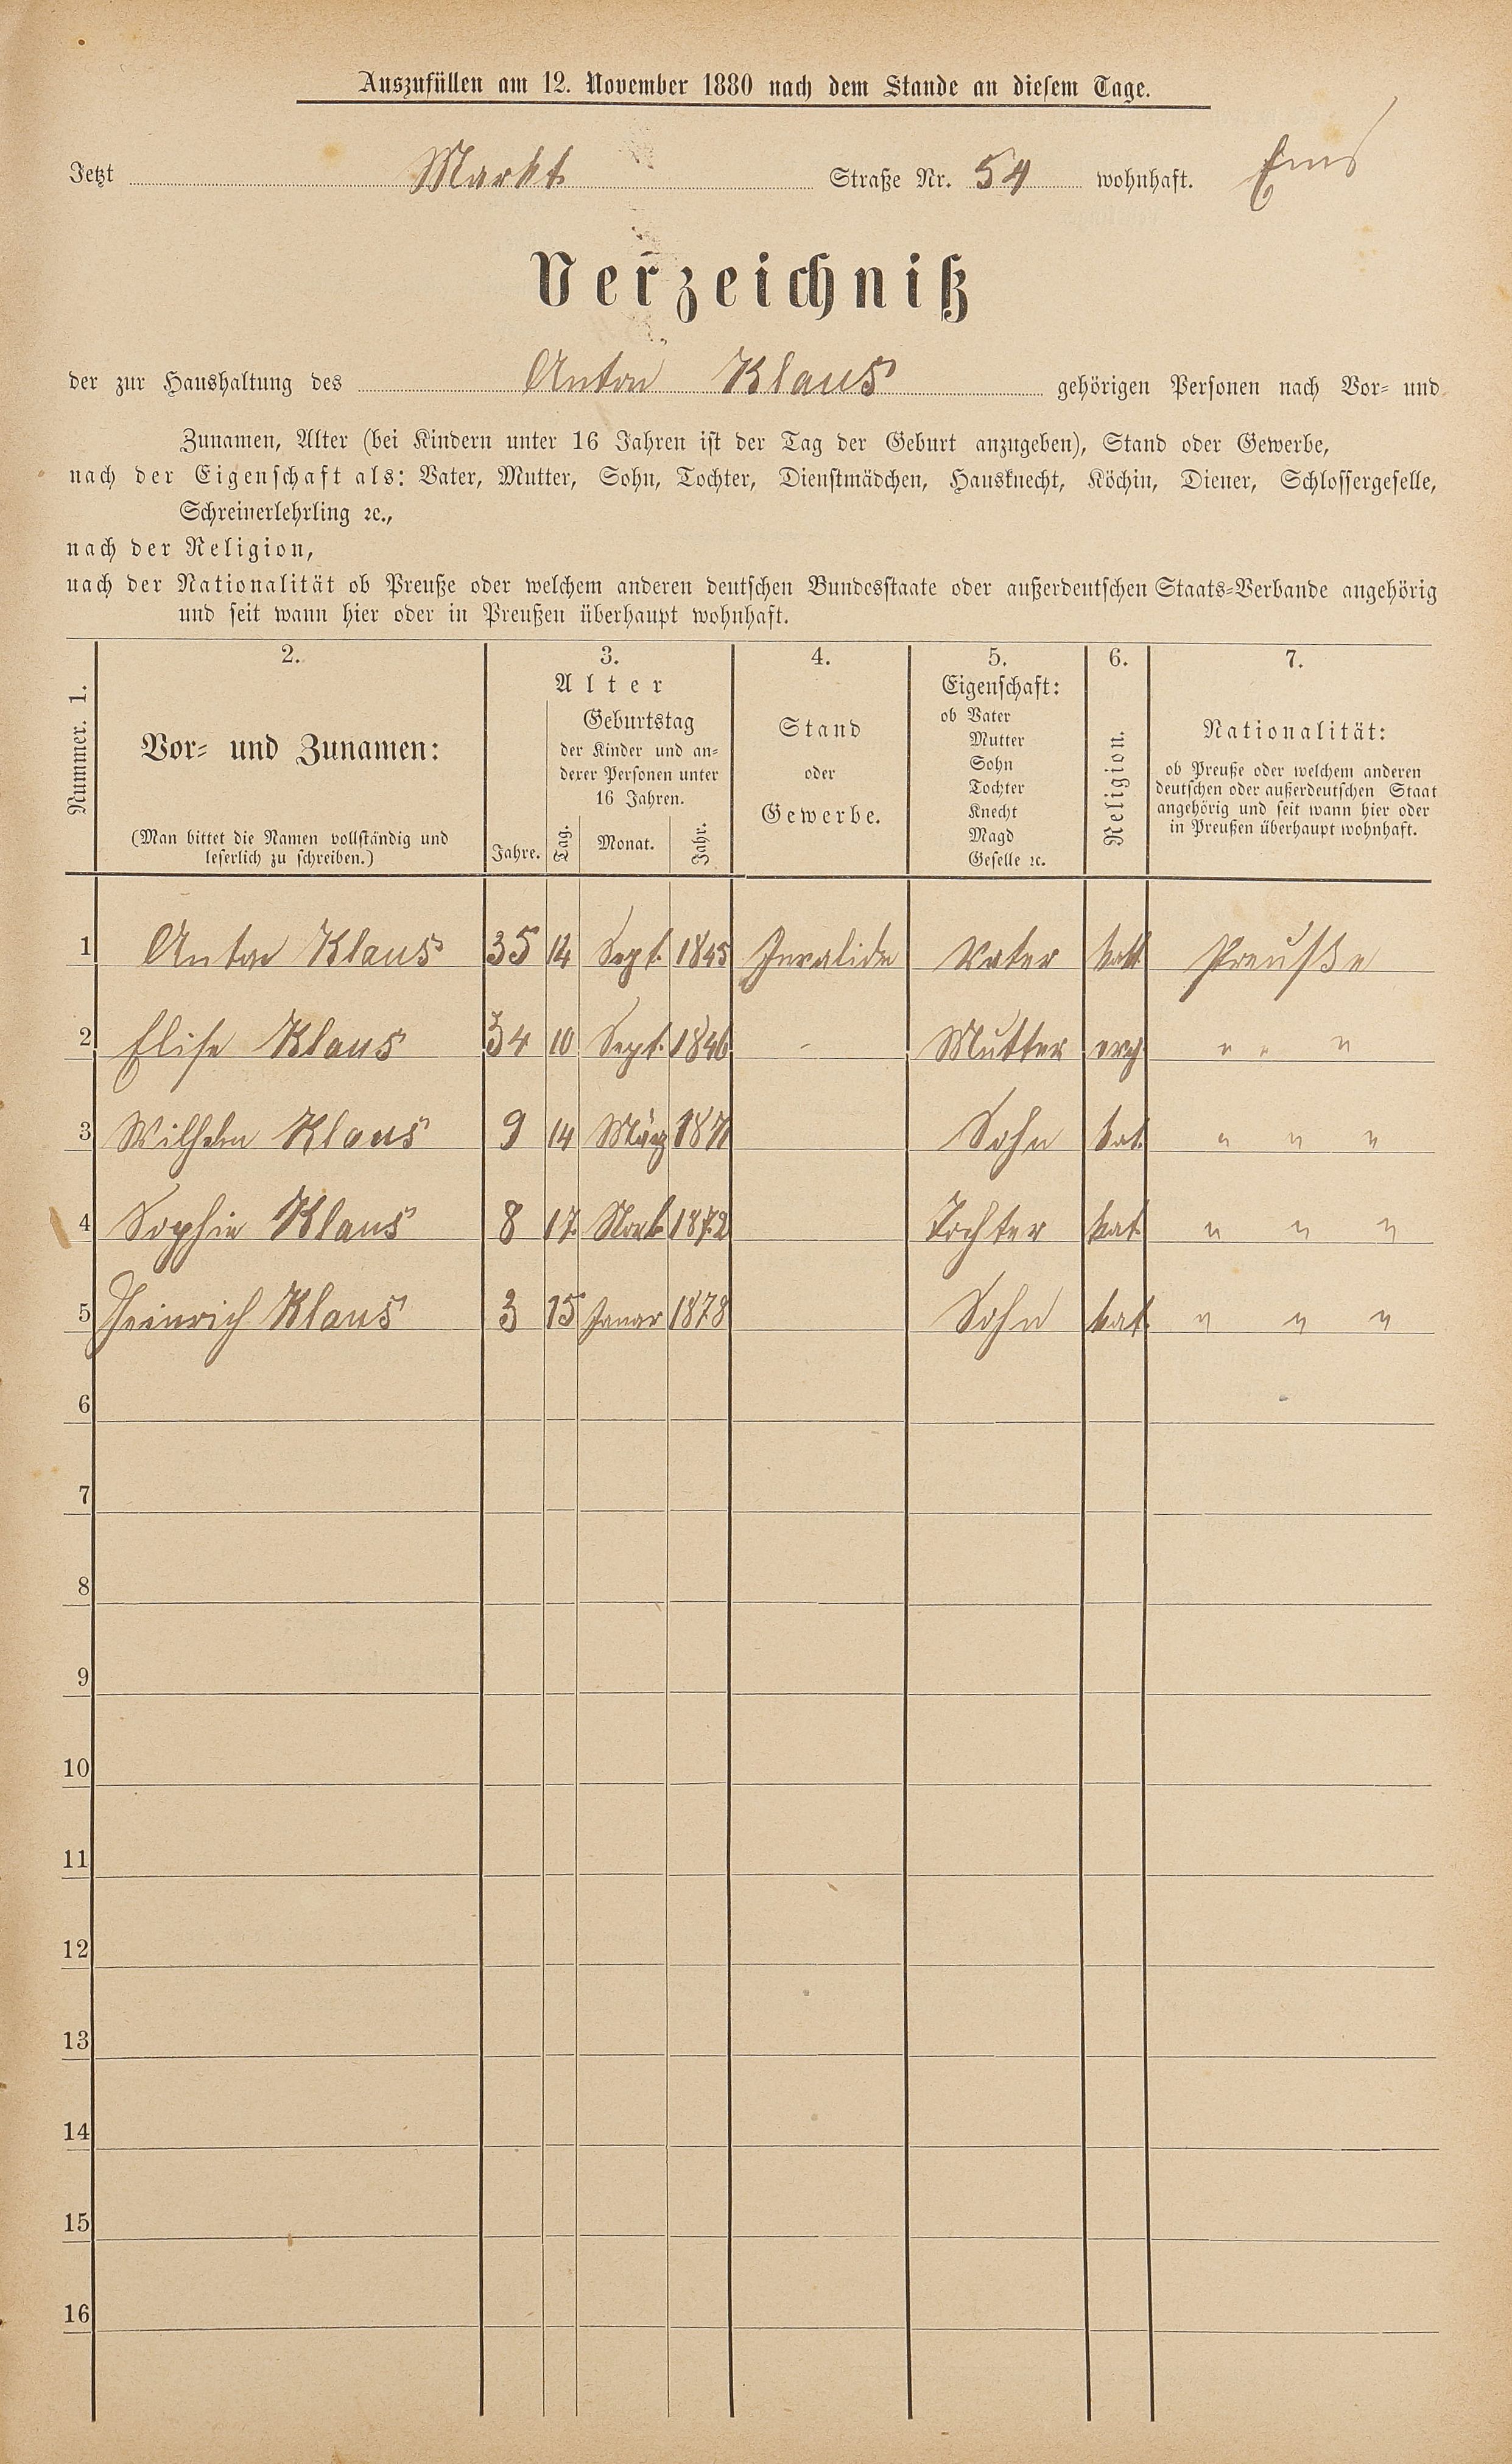 Auszufüllen am 12. November 1880 nach dem Stande an diesem Tage.
Jetzt Markt Straße Nr. 54 wohnhaft. Ems
Verzeichniß
der zur Haushaltung des Anton Klaus gehörigen Personen nach Vor- und
Zunamen, Alter (bei Kindern unter 16 Jahren ist der Tag der Geburt anzugeben), Stand oder Gewerbe,
nach der Eigenschaft als: Vater, Mutter, Sohn, Tochter, Dienstmädchen, Hausknecht, Köchin, Diener, Schlossergeselle,
Schreinerlehrling ꝛc.,
nach der Religion,
nach der Nationalität ob Preuße oder welchem anderen deutschen Bundesstaate oder außerdeutschen Staats-Verbande angehörig
und seit wann hier oder in Preußen überhaupt wohnhaft.
Nummer. 1.
2.
Vor- und Zunamen:
(Man bittet die Namen vollständig und
leserlich zu schreiben.)
3.
Alter
Jahre.
Geburtstag
der Kinder und an-
derer Personen unter
16 Jahren.
Tag. Monat. Jahr.
4.
Stand
oder
Gewerbe.
5.
Eigenschaft:
ob Vater
Mutter
Sohn
Tochter
Knecht
Magd
Geselle ꝛc.
6.
Religion.
7.
Nationalität:
ob Preuße oder welchem anderen
deutschen oder außerdeutschen Staat
angehörig und seit wann hier oder
in Preußen überhaupt wohnhaft.
1 Anton Klaus 35 14 Sept. 1845 Invalide Vater kath Preuße
2 Elise Klaus 34 10 Sept. 1846 - Mutter evg. " " "
3 Wilhelm Klaus 9 14 März 1871 Sohn kat. " " "
4 Sophie Klaus 8 17. Novb. 1872 Tochter kat. " " "
5 Heinrich Klaus 3 15 Januar 1878 Sohn kat. " " "
6
7
8
9
10
11
12
13
14
15
16